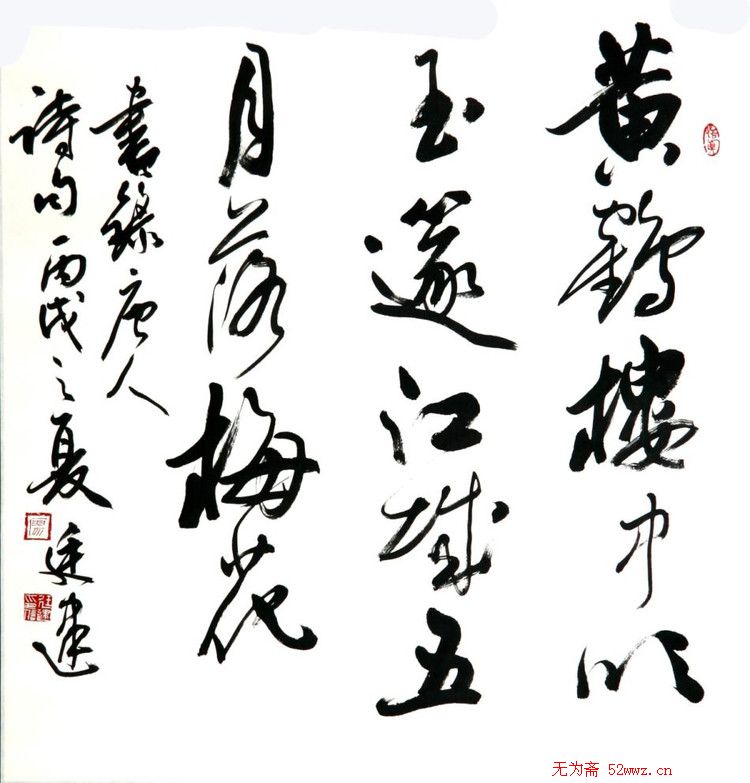 黄鶴樓中吹
玉篴江城五
月落梅花
書錄唐人
詩句丙戌之夏
无为斋 52wwz.cn